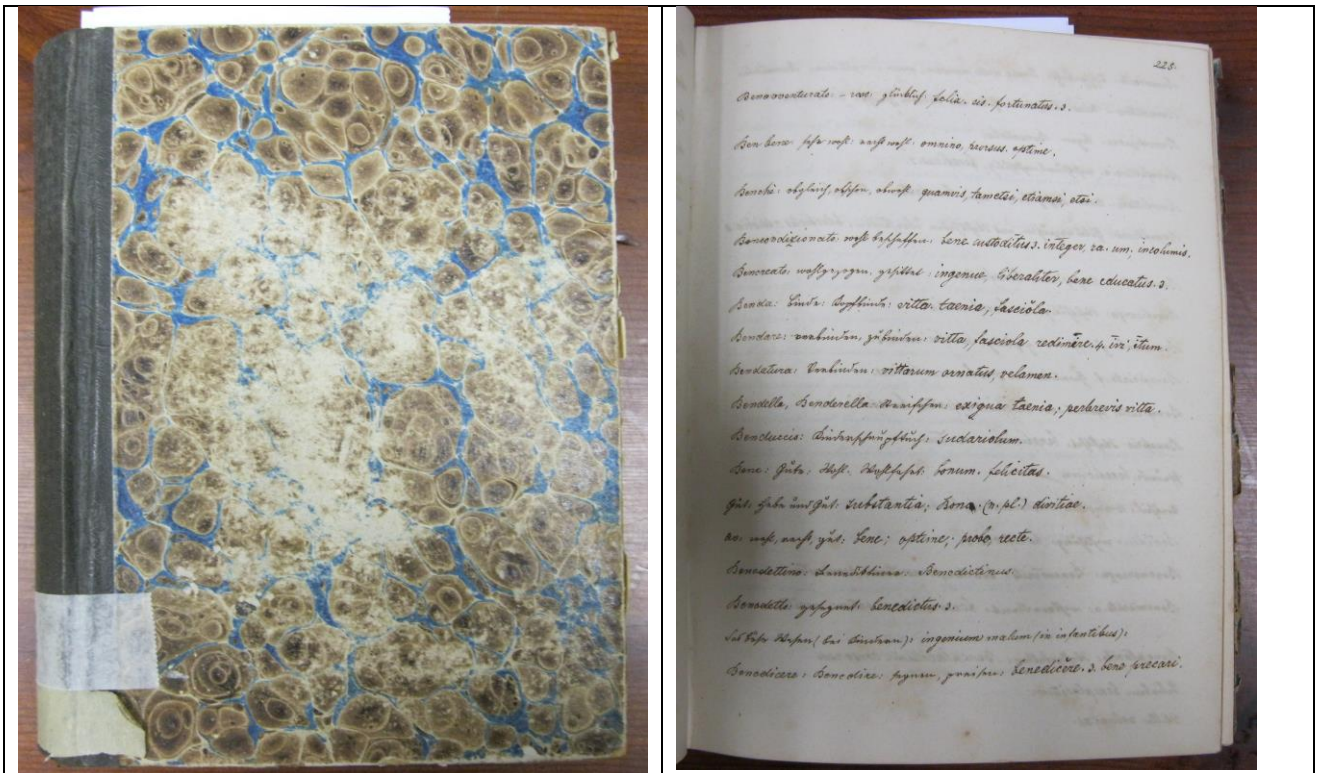 225.
Benavventurato: glücklich: felix. cis. fortunatus. 3.
Ben bene: sehr wohl: recht wohl: omnino, prorsus. optime.
Benchè: obgleich, obschon, obwohl: quamvis, tametsi, etiamsi, etsi.
Bencondizionato: wohl beschaffen: bene custoditus 3. integer, ra. um, incolumis.
Bencreato: wohlgezogen, gesittet: ingenue, liberaliter, bene educatus. 3.
Benda: Binde: Kopfbinde: vitta. taenia, fasciola.
Bendare: verbinden, zubinden: vitta, fasciola redimire. 4. ivi, itum.
Bendatura: Verbinden: vittarum ornatus, velamen.
Bendella, Benderella: exigua taenia; perbrevis vitta.
Benduccio: Kinderschnupftuch: sudariolum.
Bene: Gute: Wohl. Wohlfahrt: bonum. felicitas.
Gut: Habe und Gut: substantia; Bona. (n. pl.) divitiae.
av. wohl, recht, gut: bene; optime; probe, recte.
Benedettino: Benediktiner: Benedictinus.
Benedetto: gesegnet: benedictus. 3.
Wesen (bei Kindern): ingenium malum (in infantibus):
Benedicere: Benedire: segnen, preisen: benedicere. 3. bene precari.